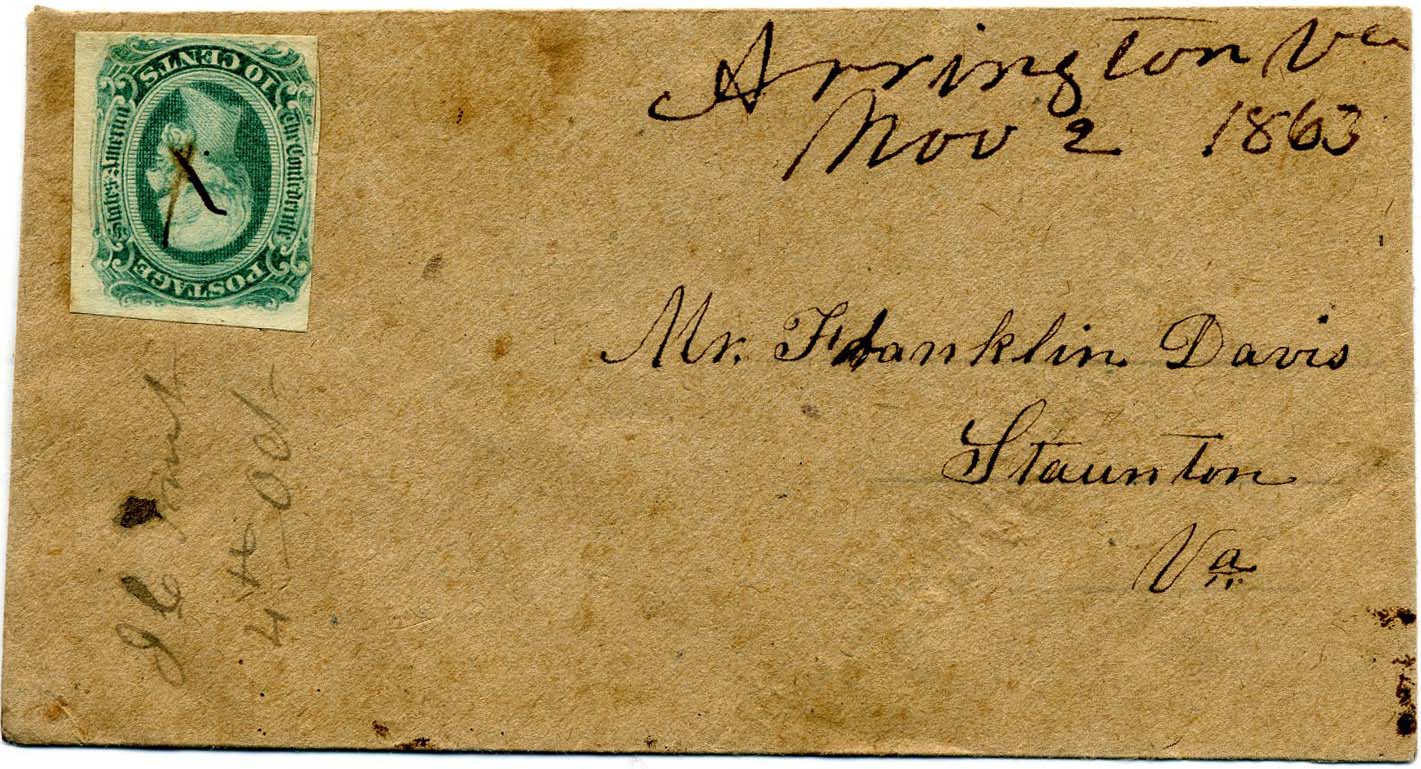 Arrington Va
Nov 2 1863
POSTAGE
The Confederate
States America
10 CENTS
Mr. Franklin Davis
Staunton
Va
4th Oct